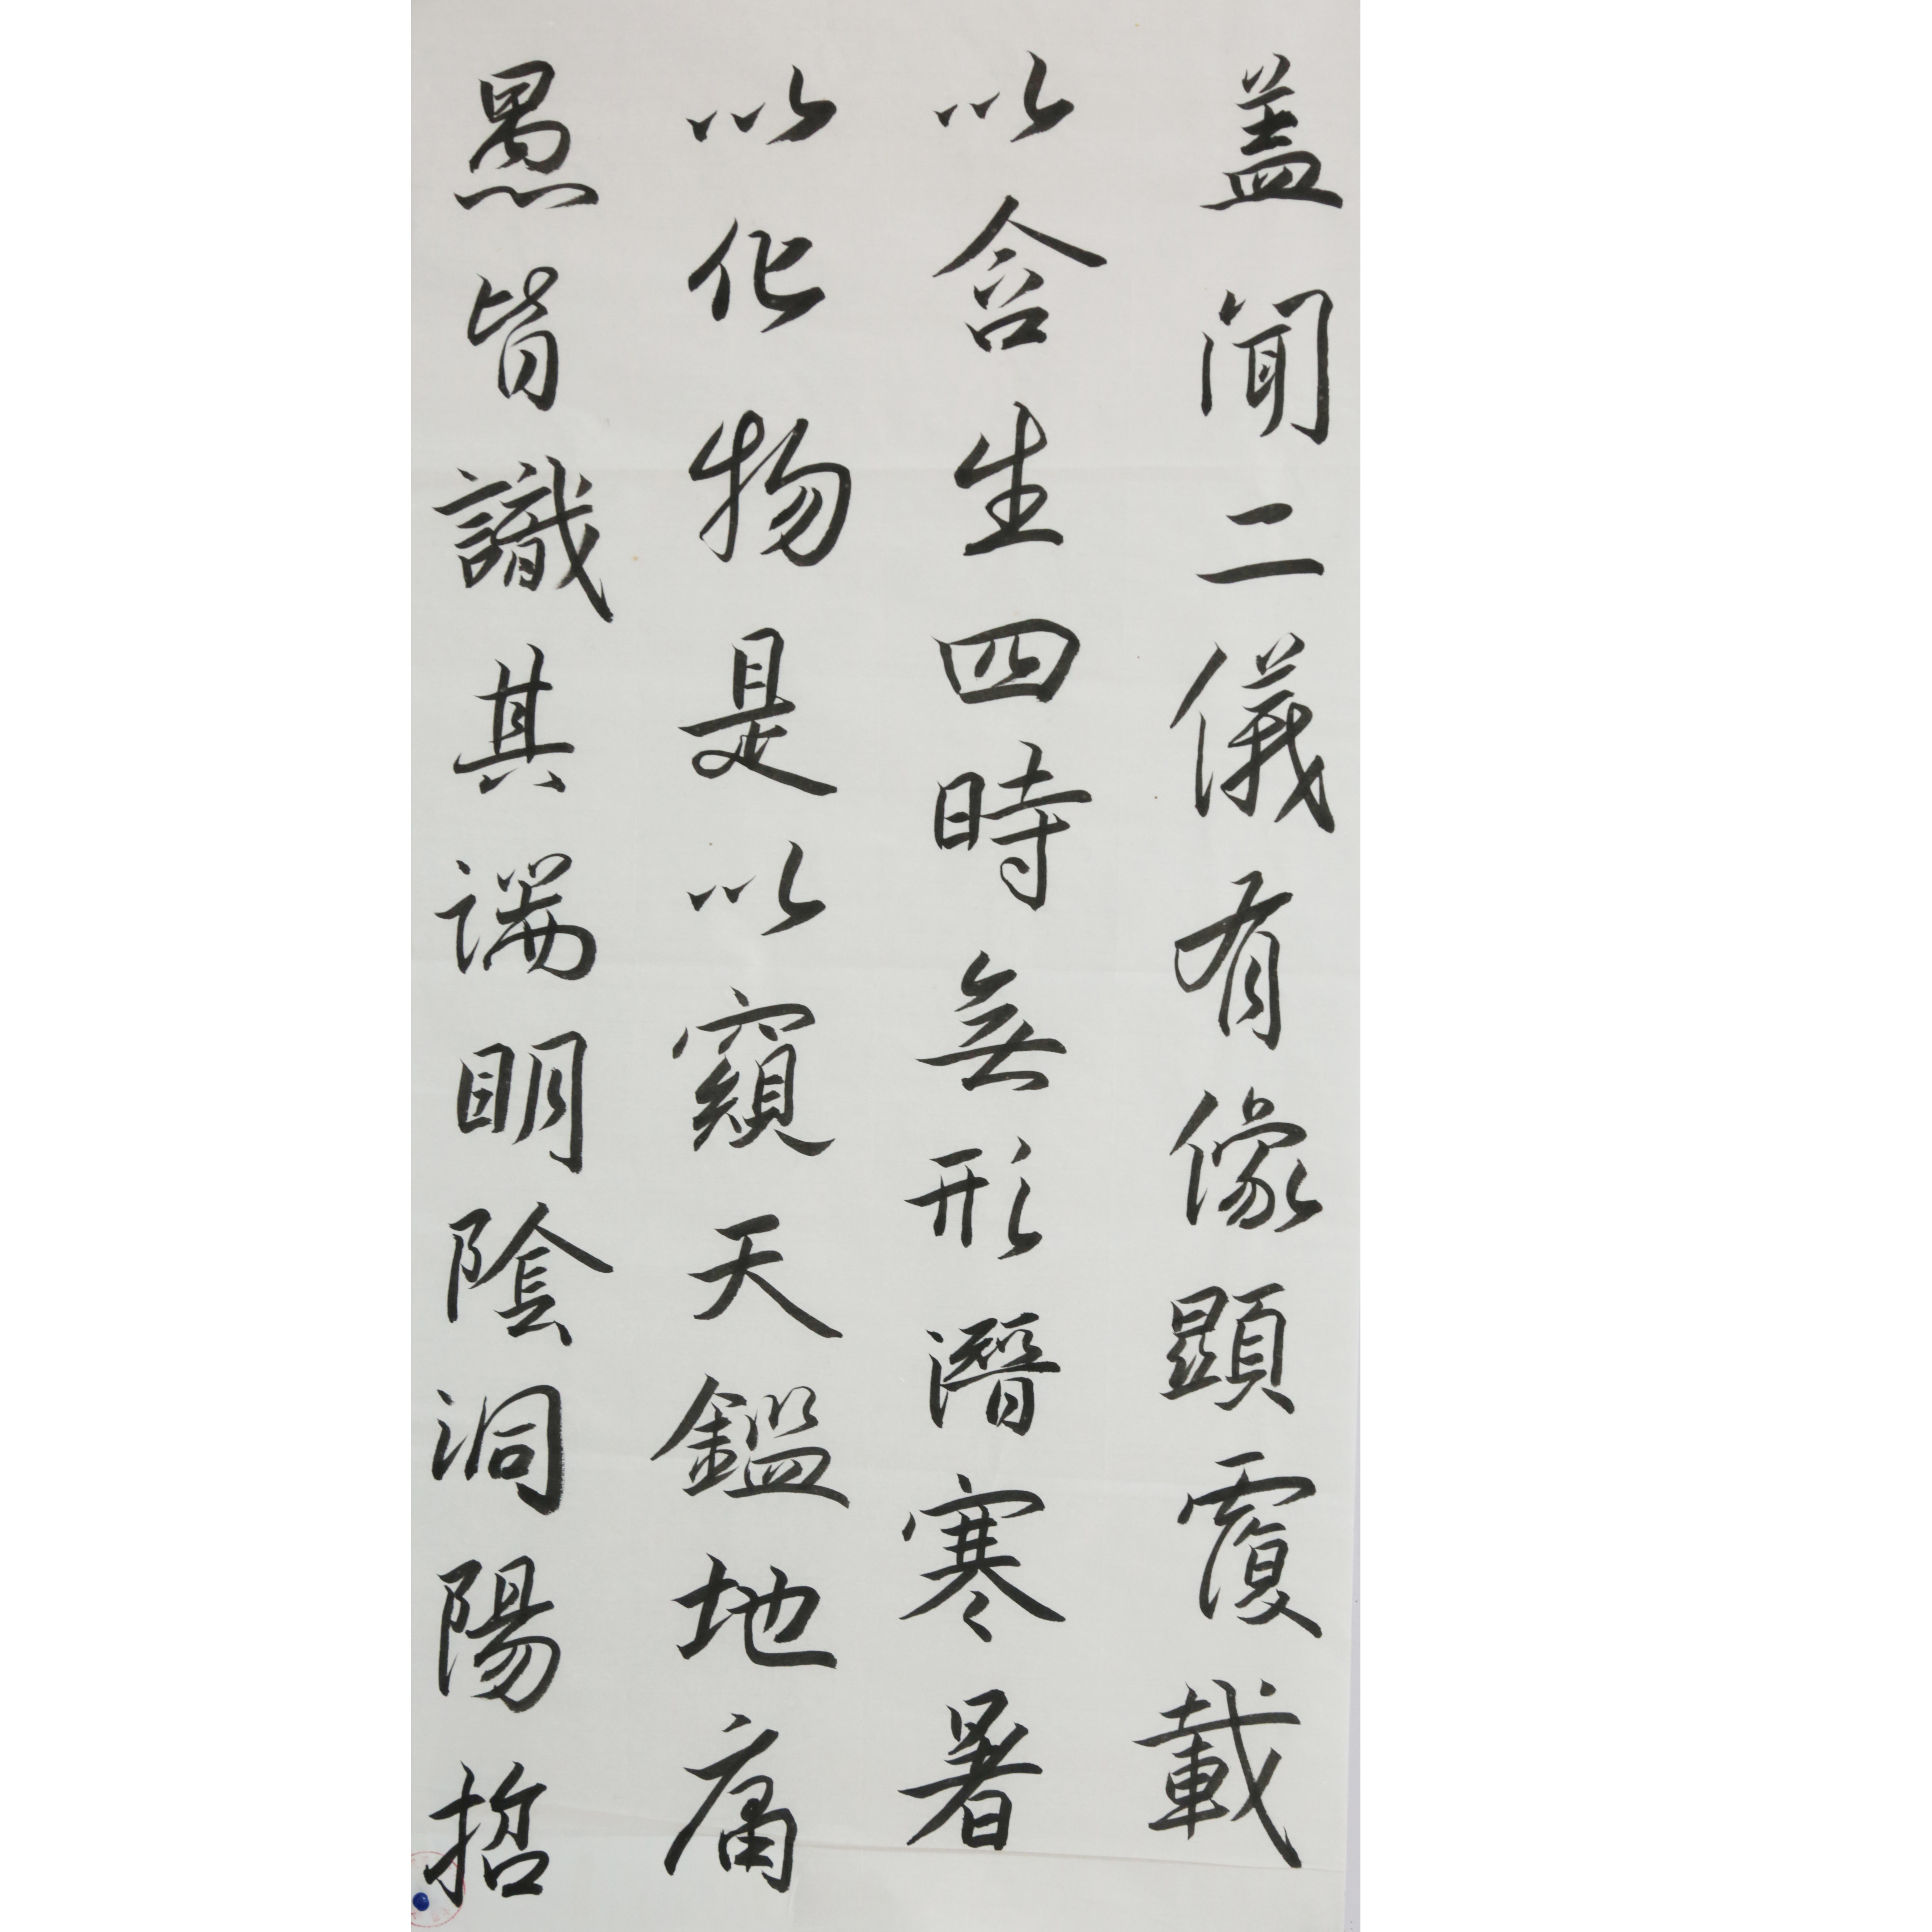 蓋聞二儀有像顯覆載
以含生四時無形潛寒暑
以化物是以窺天鑑地庸
愚皆識其端明陰洞陽哲